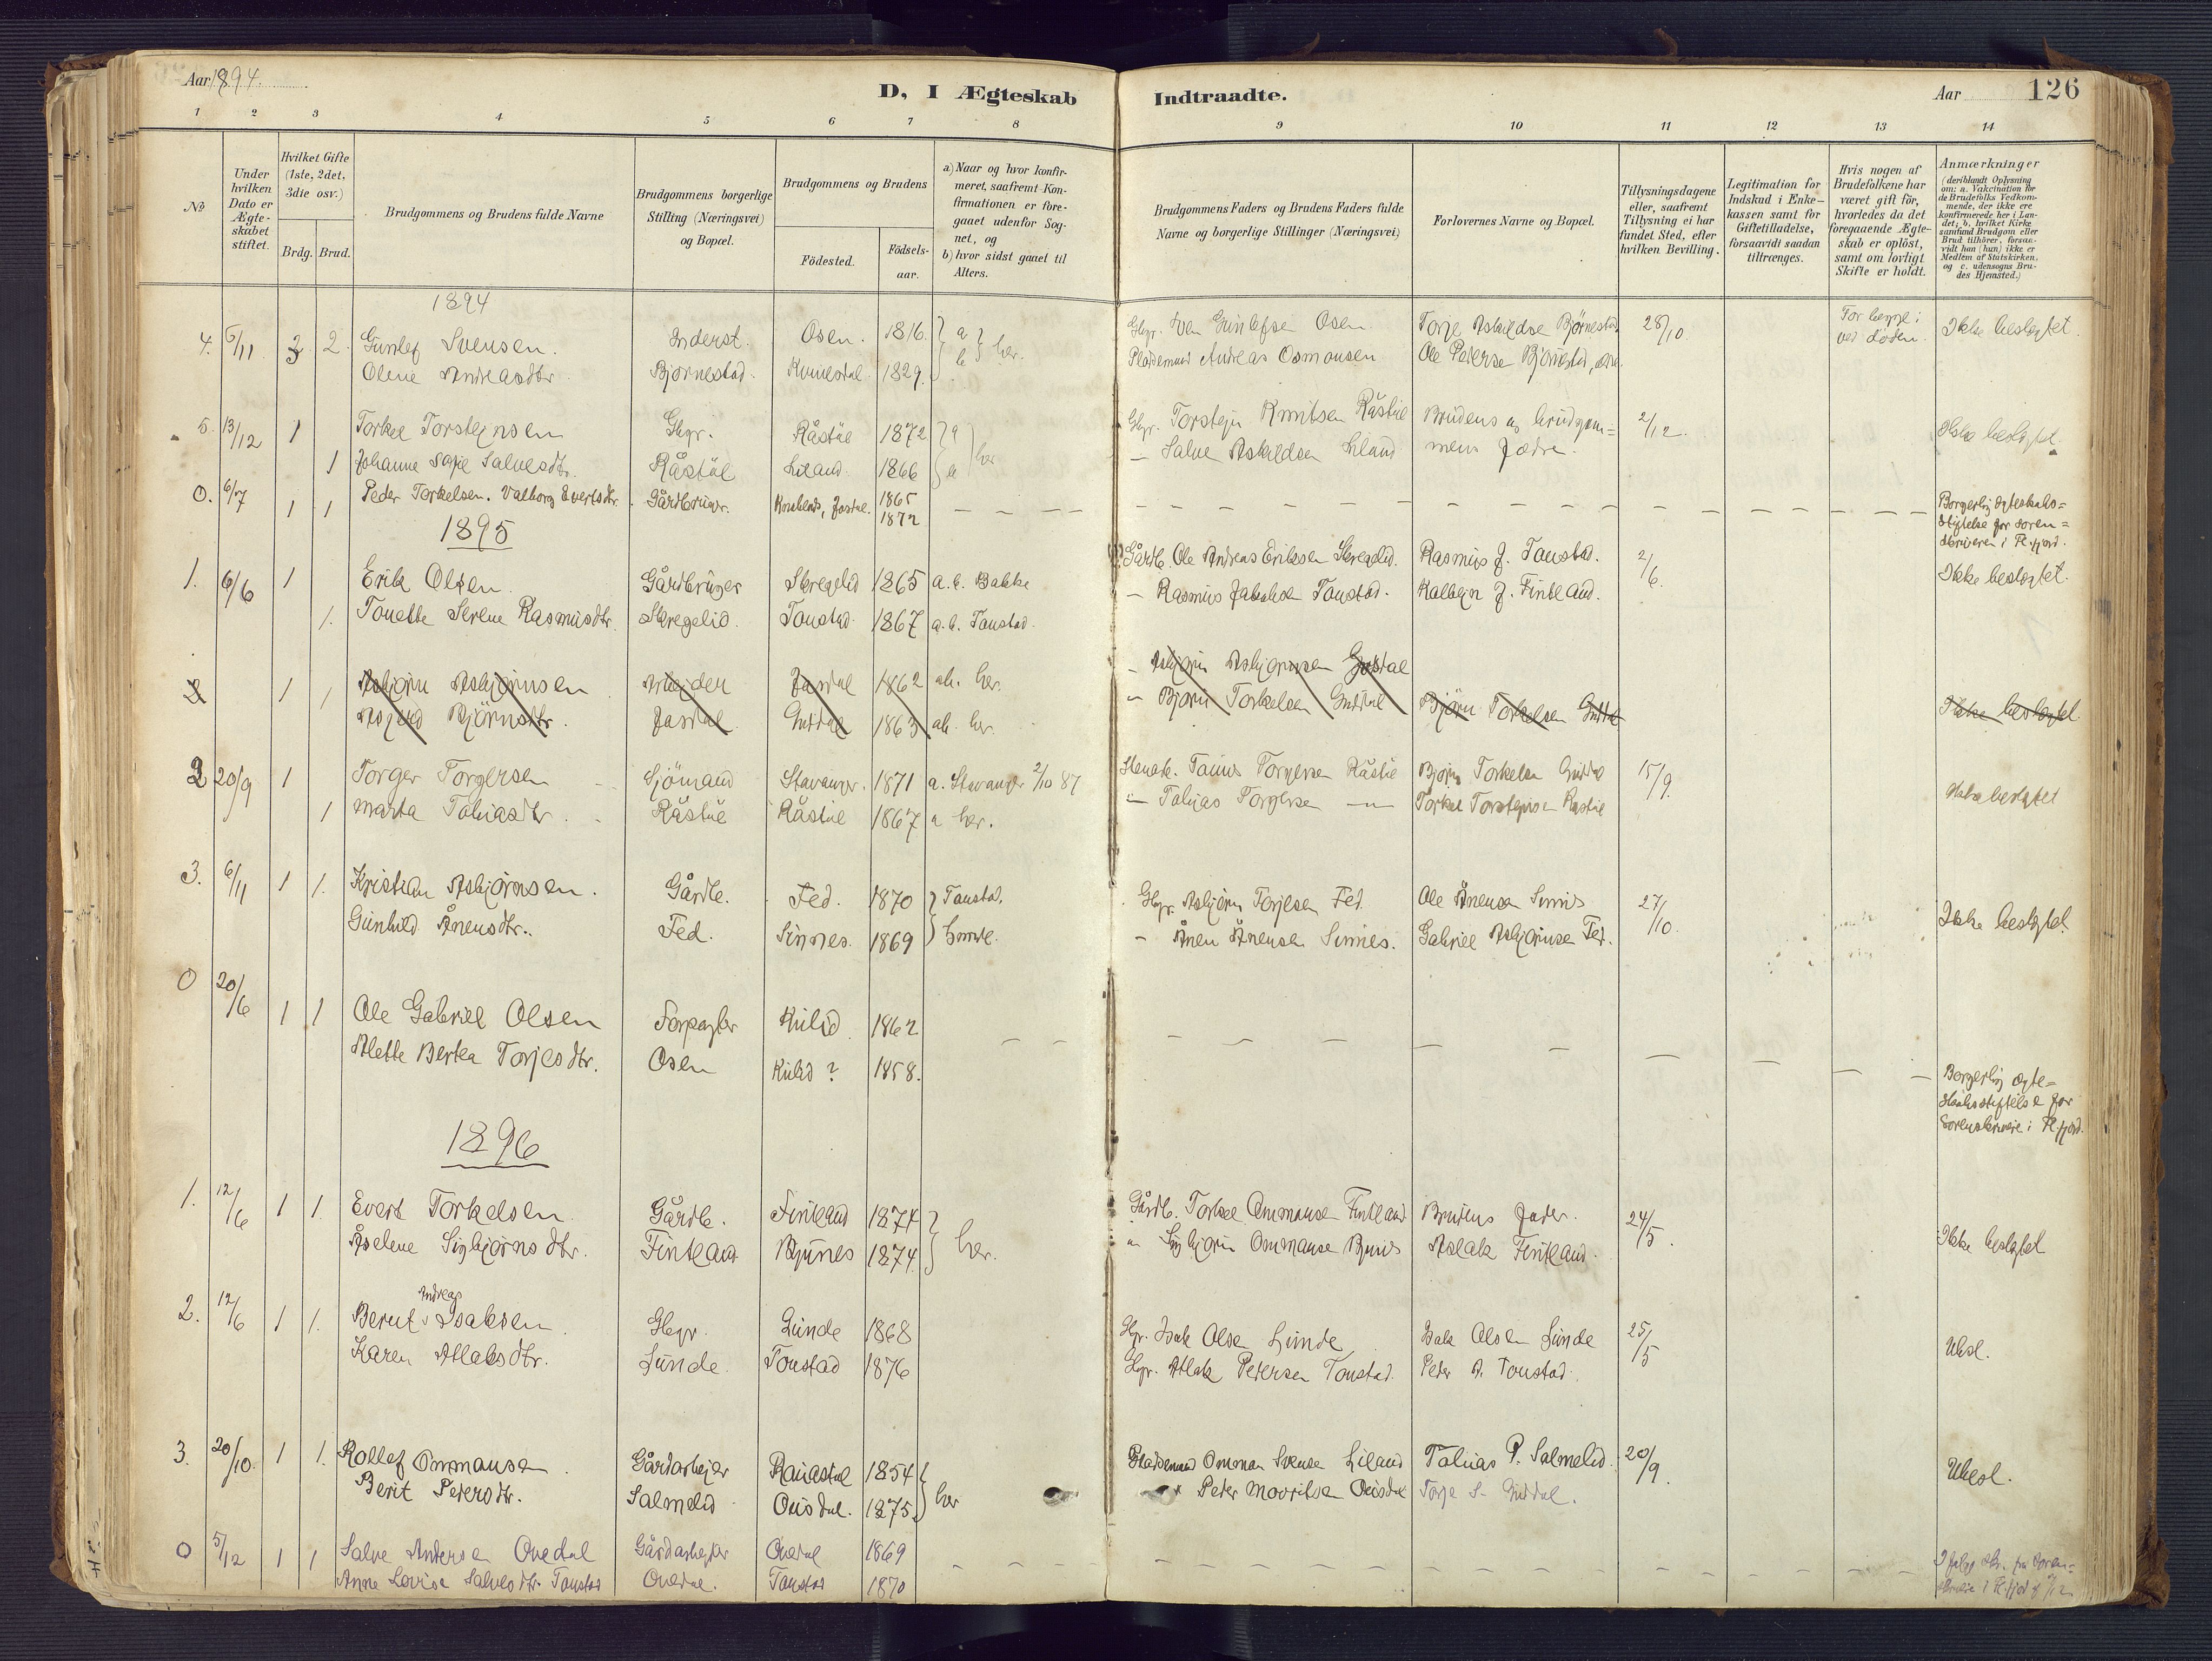 Aar 1894.
D, I Ægteskab
Indtraadte.
Aar
126
1 2 3 4 5 6 7 8 9 10 11 12 13 14
№
Under hvilken Dato er Ægteskabet stiftet.
Hvilket Gifte (1ste, 2det, 3die osv.)
Brdg. Brud.
Brudgommens og Brudens fulde Navne
Brudgommens borgerlige Stilling (Næringsvei) og Bopæl.
Brudgommens og Brudens
Födested.
Födselsaar.
a) Naar og hvor konfirmeret, saafremt Konfirmationen er foregaaet udenfor Sognet, og
b) hvor sidst gaaet til Alters.
Brudgommens Faders og Brudens Faders fulde Navne og borgerlige Stillinger (Næringsvei)
Forlovernes Navne og Bopæl.
Tillysningsdagene eller, saafremt Tillysning ei har fundet Sted, efter hvilken Bevilling.
Legitimation for Indskud i Enkekassen samt for Giftetilladelse, forsaavidt saadan tiltrænges.
Hvis nogen af Brudefolkene har været gift för, hvorledes da det foregaaende Ægteskab er oplöst, samt om lovligt Skifte er holdt.
Anmærkninger (deriblandt Oplysning om: a. Vakcination for de Brudefolks Vedkommende, der ikke ere konfirmerede her i Landet; b. hvilket Kirkesamfund Brudgom eller Brud tilhörer, forsaavidt han (hun) ikke er Medlem af Statskirken, og c. udensogns Brudes Hjemsted.)
1894
4. 6/11 3 2 Gunlef Svensen. Inderst. Osen. 1816. a b her. Gbgr. Sven Gunlefsen Osen. Torje Askildse Björnestad 28/10 For begge: ved Döden. Ikke beslegtet.
Olene Andreasdtr. Bjørnestad. 1829. Pladsemand Andreas Osmonsen Ole Peterse Bjornestad,
5. 13/12 1 Torkel Torsteinsen Gbgr. Råstöl 1872 a her Gbgr. Torstein Knutsen Råstöl Brudens og brudgom= 2/12. Ikke beslegtet.
1 Johanne Sofie Salvesdtr. Råstöl Liland 1866 a – Salve Askildsen Liland mens fædre.
0. 6/7 1 1 Peder Torkelsen. Valborg Evertsdtr. Gårdbruger. Josdal. 1865 1872 Borgerlig ægteskabs= stiftelse for Soren= skriveren i Fl.fjord.
1895
1. 6/6 1 Erik Olsen. Gårdbruger Skregelid 1865 a.b. Bakke Gårdb. Ole Andreas Eriksen Skregelid. Rasmus J. Tonstad. 2/6. Ikke beslegtet.
1. Tonette Serene Rasmusdtr. Skregelid. Tonstad. 1867 a.b. Tonstad. – Rasmus Jakobsen Tonstad. Kolbejn J. Fintland.
2 1 1 Asbjörn Asbjörnsen Josdal 1862 ab. her. – Asbjörn Asbjørnsen Josdal
Björnsdtr. Josdal Guddal 1863 ab. her. – Bjørn Torkelsen Guddal Björn Torkelsen Guddal Ikke beslegtet.
2 20/9 1 Torger Torgersen Sjömand Stavanger. 1871 a. Stavanger 2/10 87 Torgersen Råstöl Bjørn Torkelsen Guddal 15/9. Ikke beslegtet
1 Marta Tobiasdtr. Råstöl Råstöl 1867 a her. – Tobias Torgersen –"– Torkel Torsteinsen Råstöl
3. 6/11 1 1. Kristian Asbjörnsen. Gårdb. Fed. 1870 Tonstad. Gbgr. Asbjørn Torjesen Fed. Ole Ånensen Sinnes 27/10. Ikke beslegtet.
Gunhild Ånensdtr. Fed. Sinnes. 1869 – Ånen Ånensen Sinnes. Gabriel Asbjørnsen Fed.
0 20/6 1 1 Ole Gabriel Olsen Forpagter Kulid. 1862
Alette Berta Torjesdtr. Osen Kulid? 1858.
Borgerlig ægte= skabsstiftelse for Sorenskriveren i Fl.fjord.
1896
1. 12/6 1 1. Evert Torkelsen Gårdb. Fintland 1874 her. Gårdb. Torkel Ommonsen Fintland Brudens fader. 24/5. Ikke beslegtet
Åselene Sigbjørnsdtr. Fintland Bjunes 1874 " Sigbjørn Ommonsen Bjunes Aslak Fintland.
2. 12/6 1 1. Berut Andreas Isaksen Gbgr. Lunde 1868 Gbgr. Isak Olsen Lunde Isak Olsen Lunde 25/5 Ubesl.
Karen Atlaksdtr. Lunde. Tonstad 1876 Gbgr. Atlak Pedersen Tonstad. Peder A. Tonstad.
3. 20/10. 1 1. Rollef Ommonsen. Gårdarbejder 1854 her Pladsemand Ommon Svensen Liland Tobias P. Salmelid. 20/9. Ubesl.
Berit Pedersdtr. Salmelid Ousdal. 1875 Peder Mouritsen Ousdal Torje S. Guddal.
0 5/12 1 1 Salve Andersen Ovedal Gårdarbejder Ovedal 1869
Anne Lovise Salvesdtr. Tonstad Ovedal. Tonstad 1870 I følge skr. fra Soren= skriver i Fl.fjord